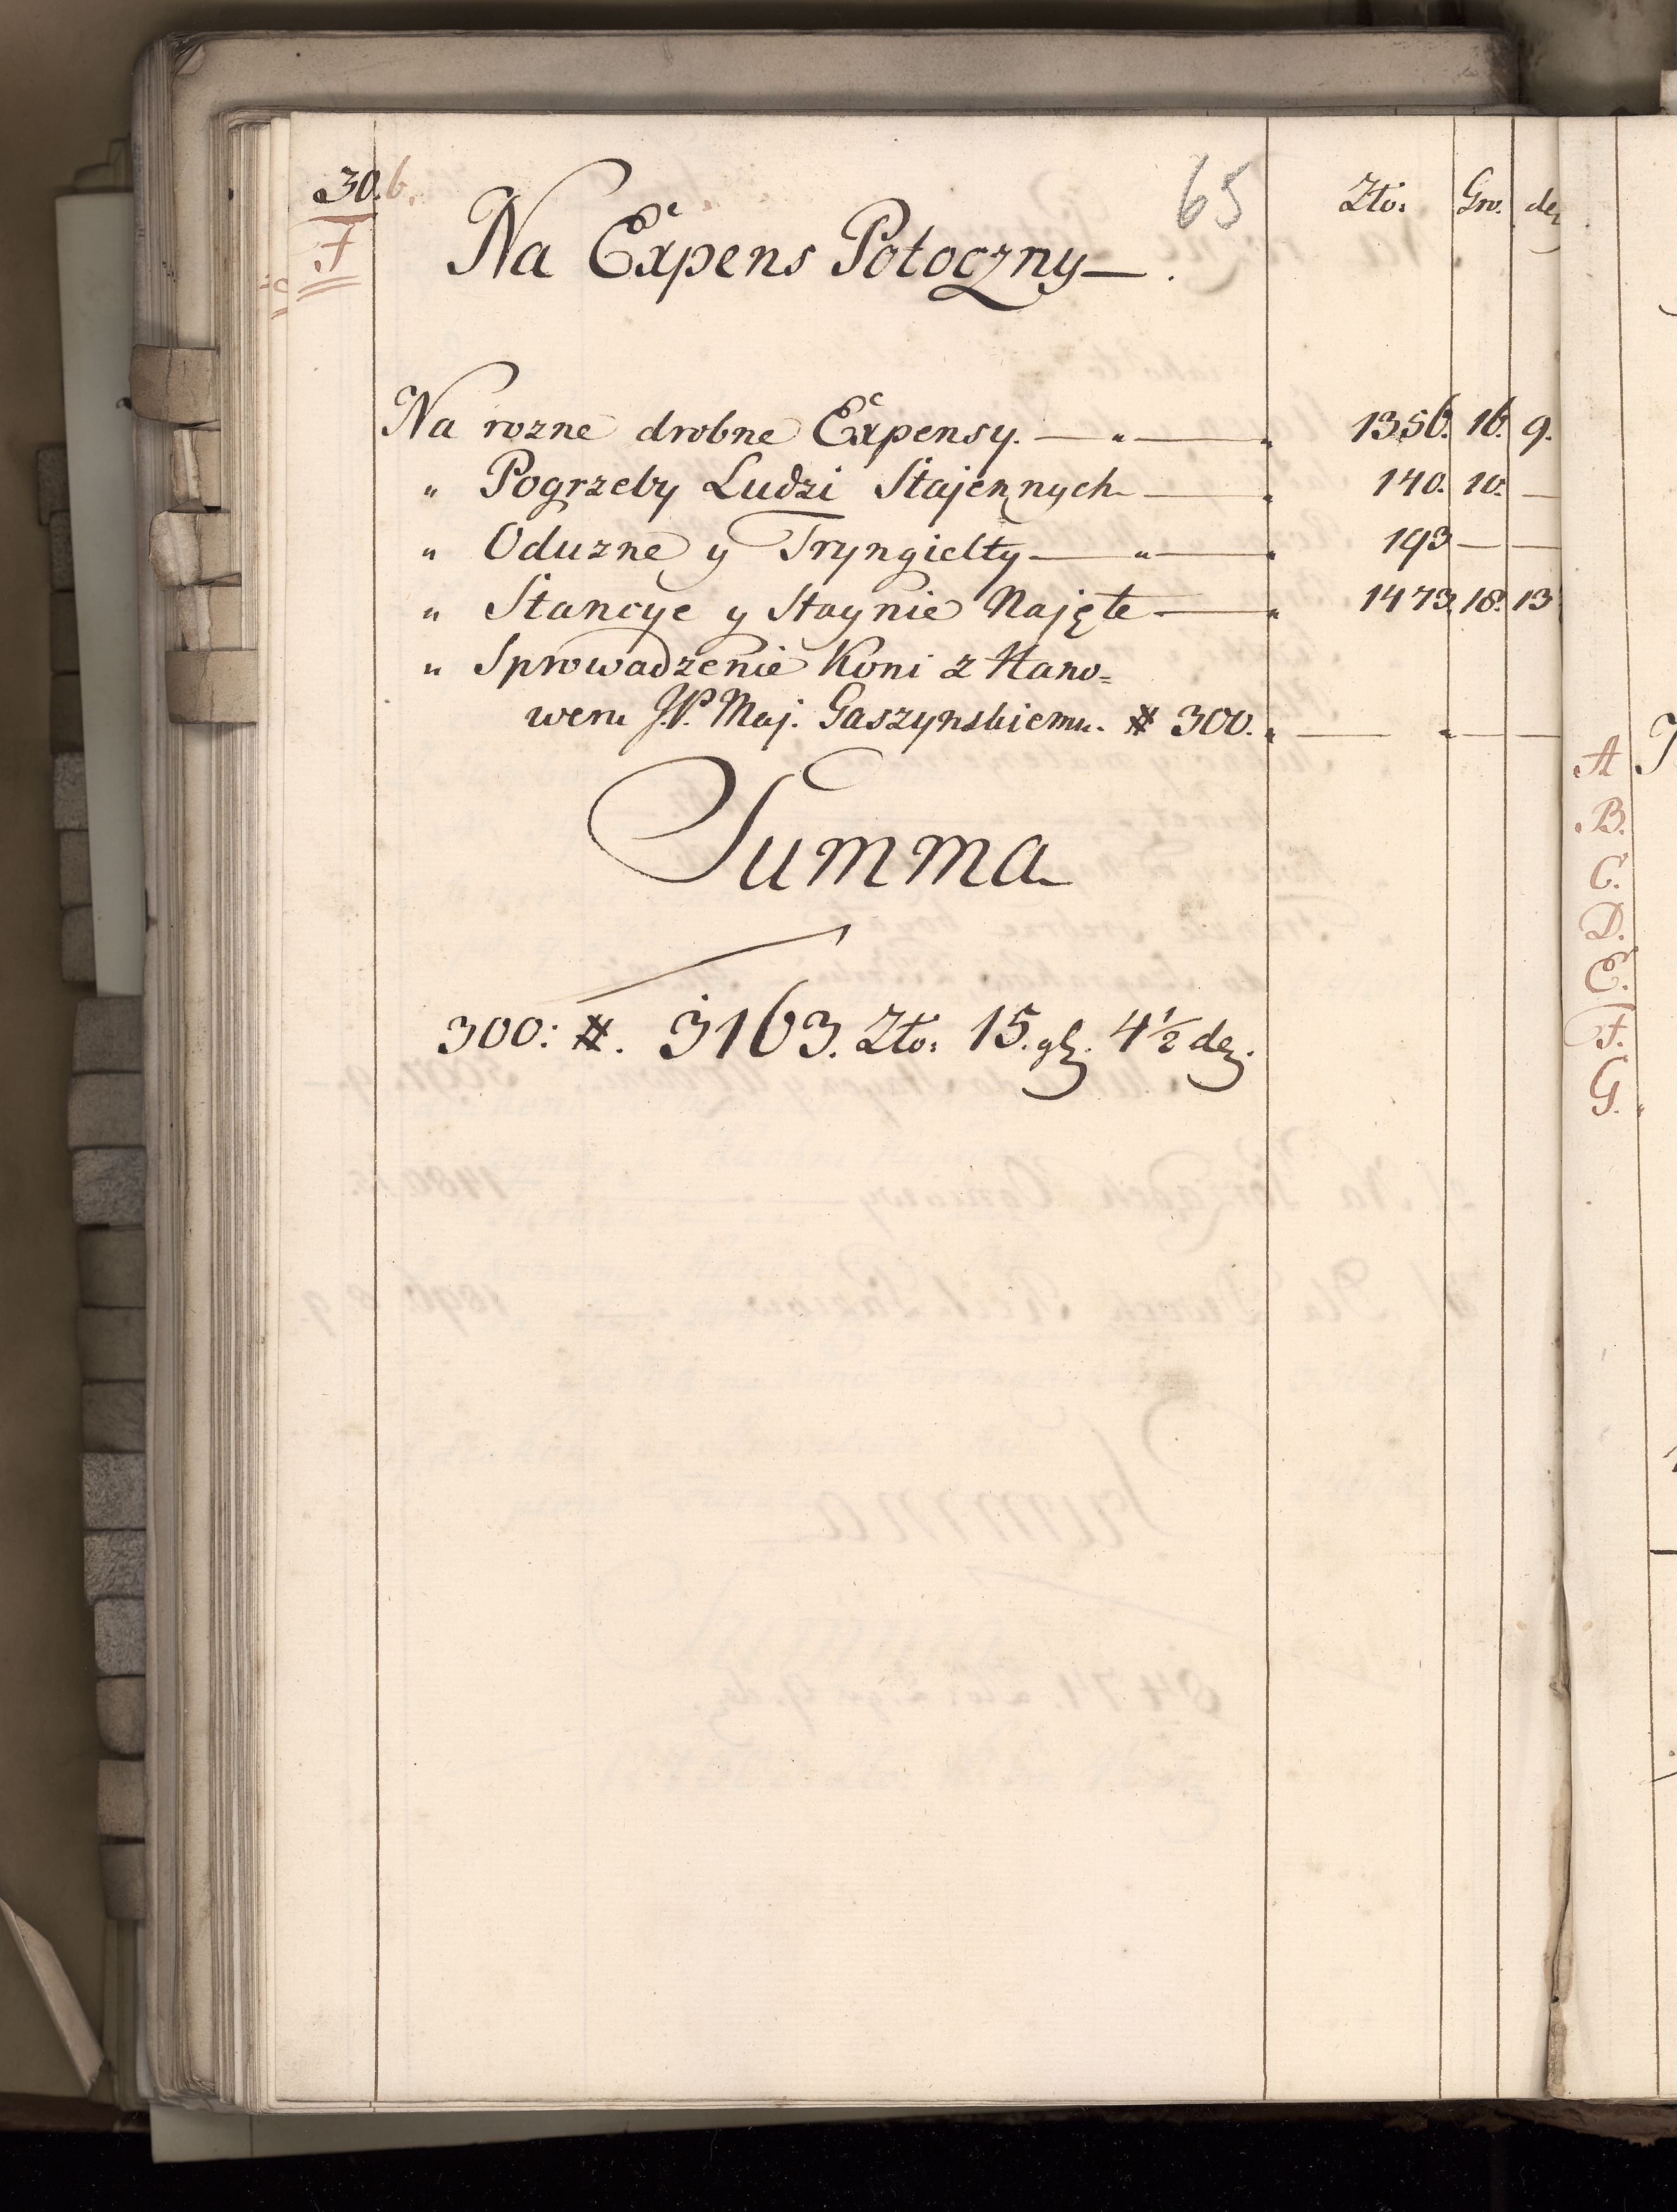 30. 6.
F
65
Zło: Gro. de
Na Expens Potoczny — .
Na rozne drobne Expensy. — " — 1356. 16. 9.
" Pogrzeby Ludzi Stajennych — 140. 10. —
" Oduzne y Tryngielty — " — 193 — —
" Stancye y Staynie Najęte — 1473. 18. 13
" Sprowadzenie Koni z Hano=
weru J.P. Maj. Gaszynskiemu. # 300. " — " — —
Summa
300: #. 3163. Zło: 15. gl. 4½ de.
A
B.
C.
D.
E.
F.
G.